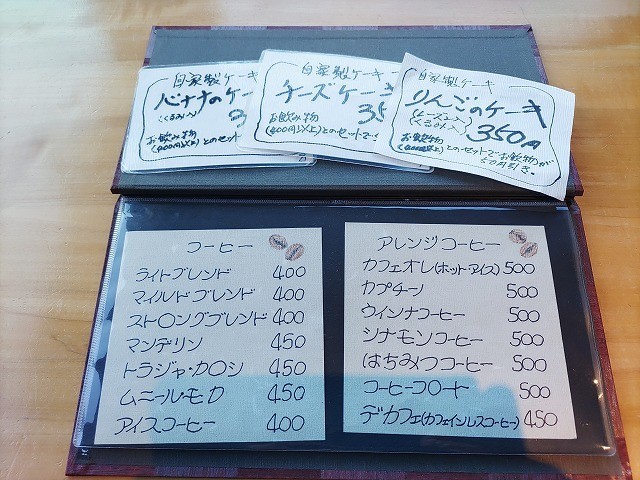 自家製ケーキ
バナナのケー
(くるみ入)
3
お飲み物
(400円以上)とのセット
自家製ケーキ
チーズケーキ
35
お飲み物
(400円以上)とのセットで
自家製ケーキ
りんごのケーキ
くるみ入) 350円
お飲物
(400円以上)とのセットでお飲物が
50円引き。
コーヒー
ライトブレンド 400
マイルドブレンド 400
ストロングブレンド 400
マンデリン 450
トラジャ・カロシ 450
ムニール・モカ 450
アイスコーヒー 400
アレンジコーヒー
カフェオレ(ホット・アイス) 500
カプチーノ 500
ウィンナコーヒー 500
シナモンコーヒー 500
はちみつコーヒー 500
コーヒーフロート 500
デカフェ(カフェインレスコーヒー) 450